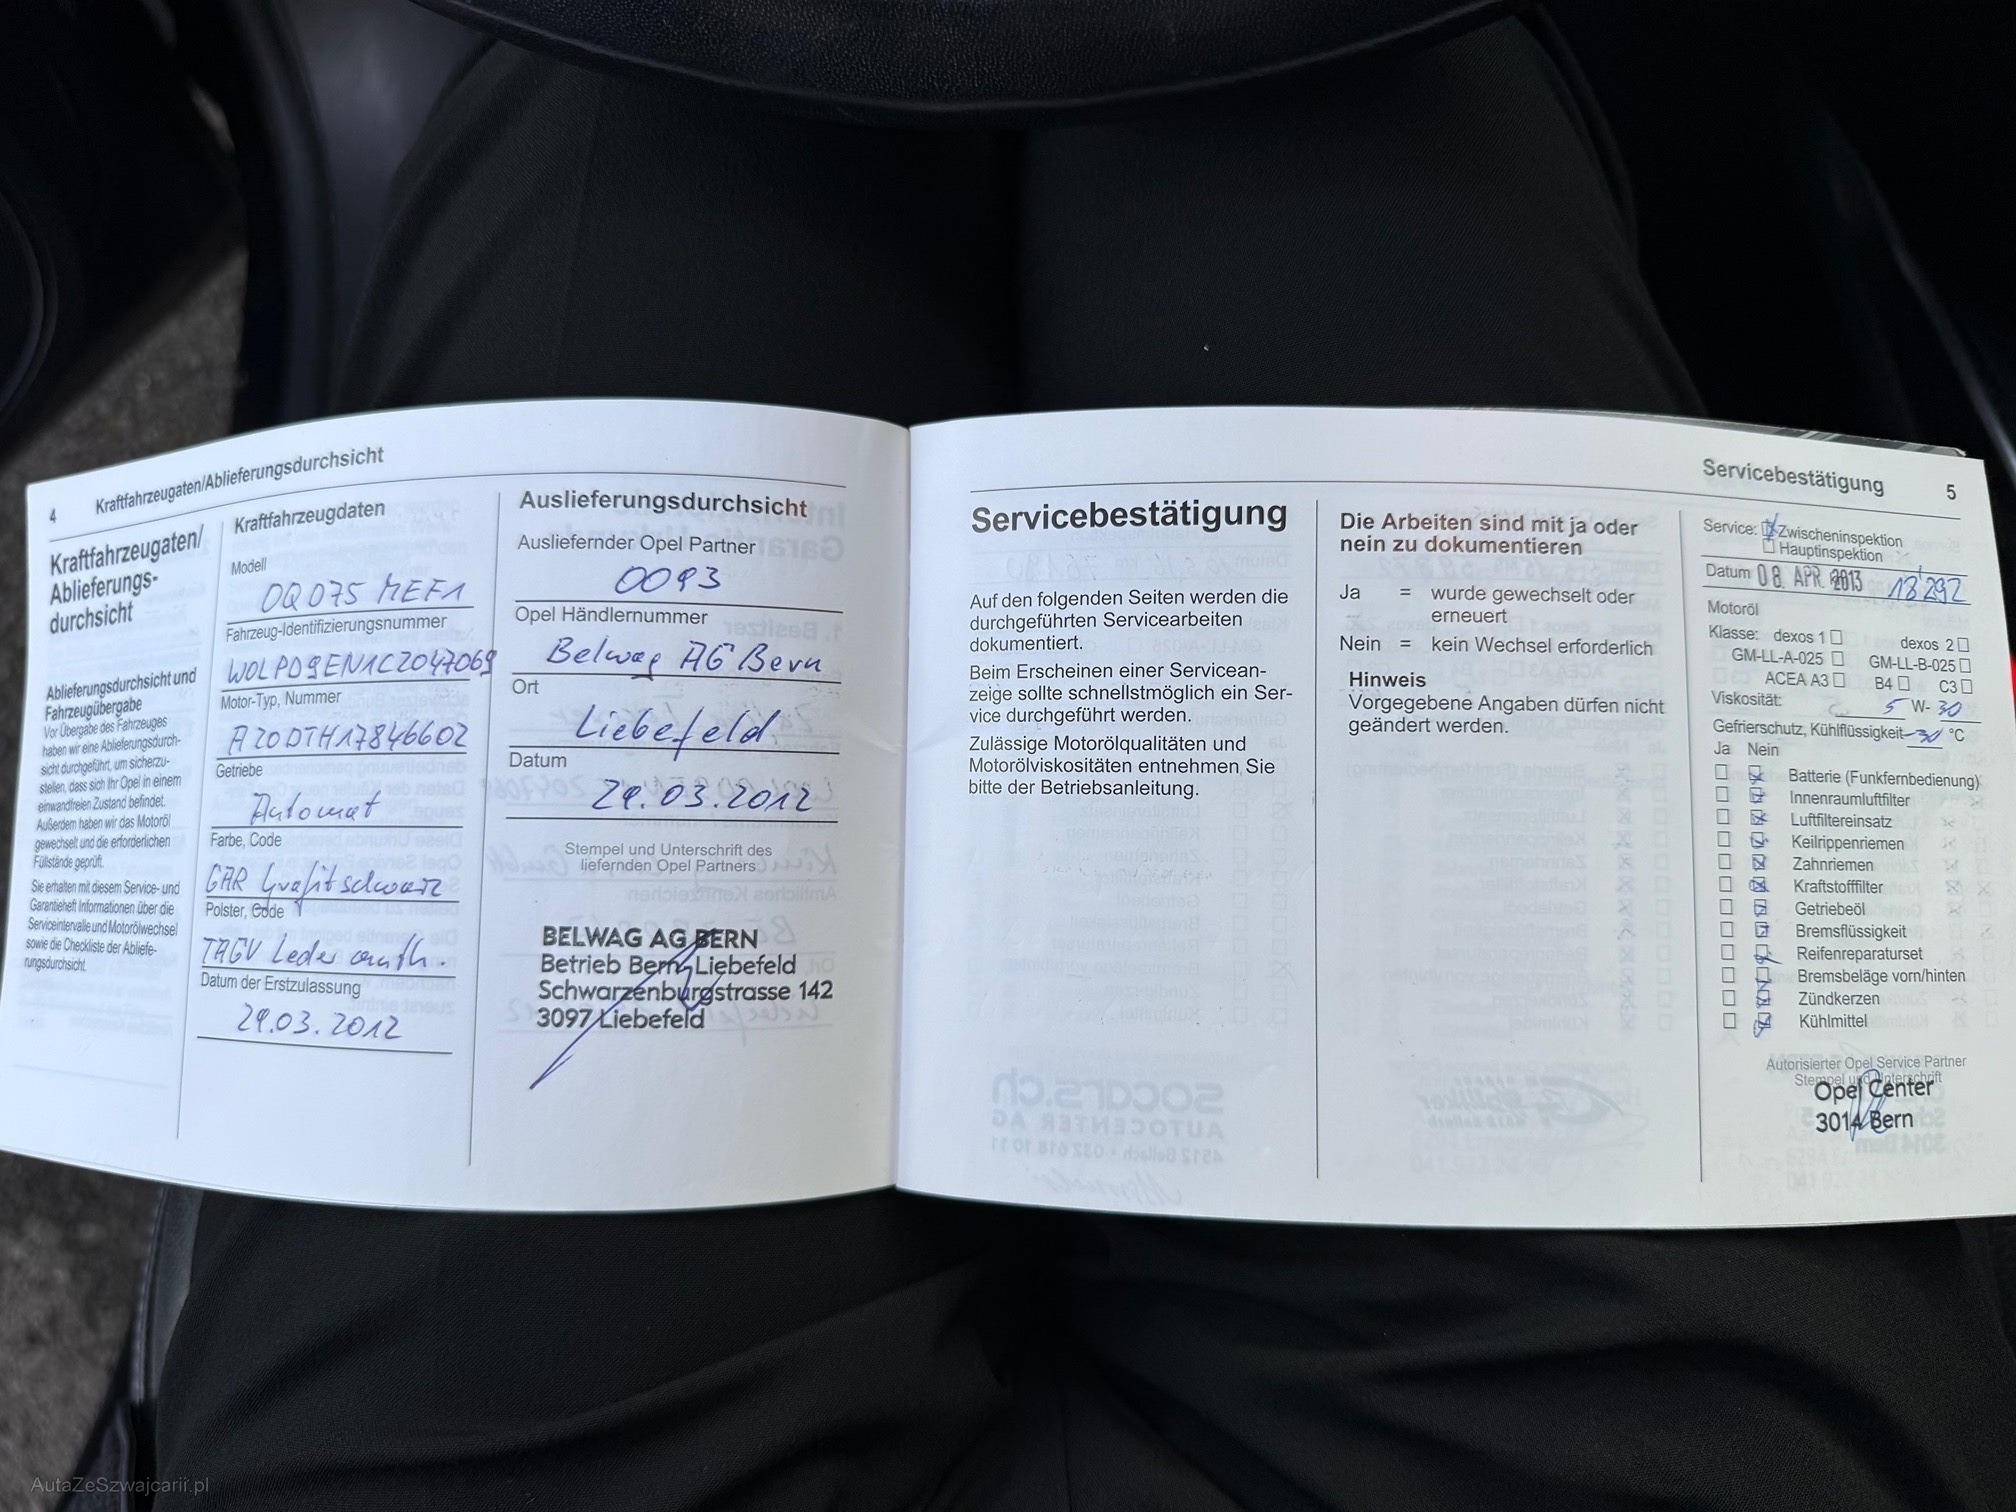 4 Kraftfahrzeugaten/Ablieferungsdurchsicht
Kraftfahrzeugaten/
Ablieferungs-
durchsicht
Ablieferungsdurchsicht und
Fahrzeugübergabe
Vor Übergabe des Fahrzeuges
haben wir eine Ablieferungsdurch-
sicht durchgeführt, um sicherzu-
stellen, dass sich Ihr Opel in einem
einwandfreien Zustand befindet.
Außerdem haben wir das Motoröl
gewechselt und die erforderlichen
Füllstände geprüft.
Sie erhalten mit diesem Service- und
Garantieheft Informationen über die
Serviceintervalle und Motorölwechsel
sowie die Checkliste der Abliefe-
rungsdurchsicht.
Kraftfahrzeugdaten
Modell
0Q075 MEF1
Fahrzeug-Identifizierungsnummer
W0LPD9EN1C2047069
Motor-Typ, Nummer
A20DTH17846602
Getriebe
Automat
Farbe, Code
GAR Grafitschwarz
Polster, Code
TAGV Leder anth.
Datum der Erstzulassung
29.03.2012
Auslieferungsdurchsicht
Ausliefernder Opel Partner
0093
Opel Händlernummer
Belwag AG Bern
Ort
Liebefeld
Datum
29.03.2012
Stempel und Unterschrift des
liefernden Opel Partners
BELWAG AG BERN
Betrieb Bern-Liebefeld
Schwarzenburgstrasse 142
3097 Liebefeld
Servicebestätigung 5
Servicebestätigung
Auf den folgenden Seiten werden die
durchgeführten Servicearbeiten
dokumentiert.
Beim Erscheinen einer Servicean-
zeige sollte schnellstmöglich ein Ser-
vice durchgeführt werden.
Zulässige Motorölqualitäten und
Motorölviskositäten entnehmen Sie
bitte der Betriebsanleitung.
Die Arbeiten sind mit ja oder
nein zu dokumentieren
Ja = wurde gewechselt oder
erneuert
Nein = kein Wechsel erforderlich
Hinweis
Vorgegebene Angaben dürfen nicht
geändert werden.
Service: Zwischeninspektion
Hauptinspektion
Datum 08. APR. 2013 18'292
Motoröl
Klasse: dexos 1 dexos 2
GM-LL-A-025 GM-LL-B-025
ACEA A3 B4 C3
Viskosität: 5 W- 30
Gefrierschutz, Kühlflüssigkeit -30 °C
Ja Nein
Batterie (Funkfernbedienung)
Innenraumluftfilter
Luftfiltereinsatz
Keilrippenriemen
Zahnriemen
Kraftstofffilter
Getriebeöl
Bremsflüssigkeit
Reifenreparaturset
Bremsbeläge vorn/hinten
Zündkerzen
Kühlmittel
Autorisierter Opel Service Partner
Stempel und Unterschrift
Opel Center
3014 Bern
AutaZeSzwajcarii.pl